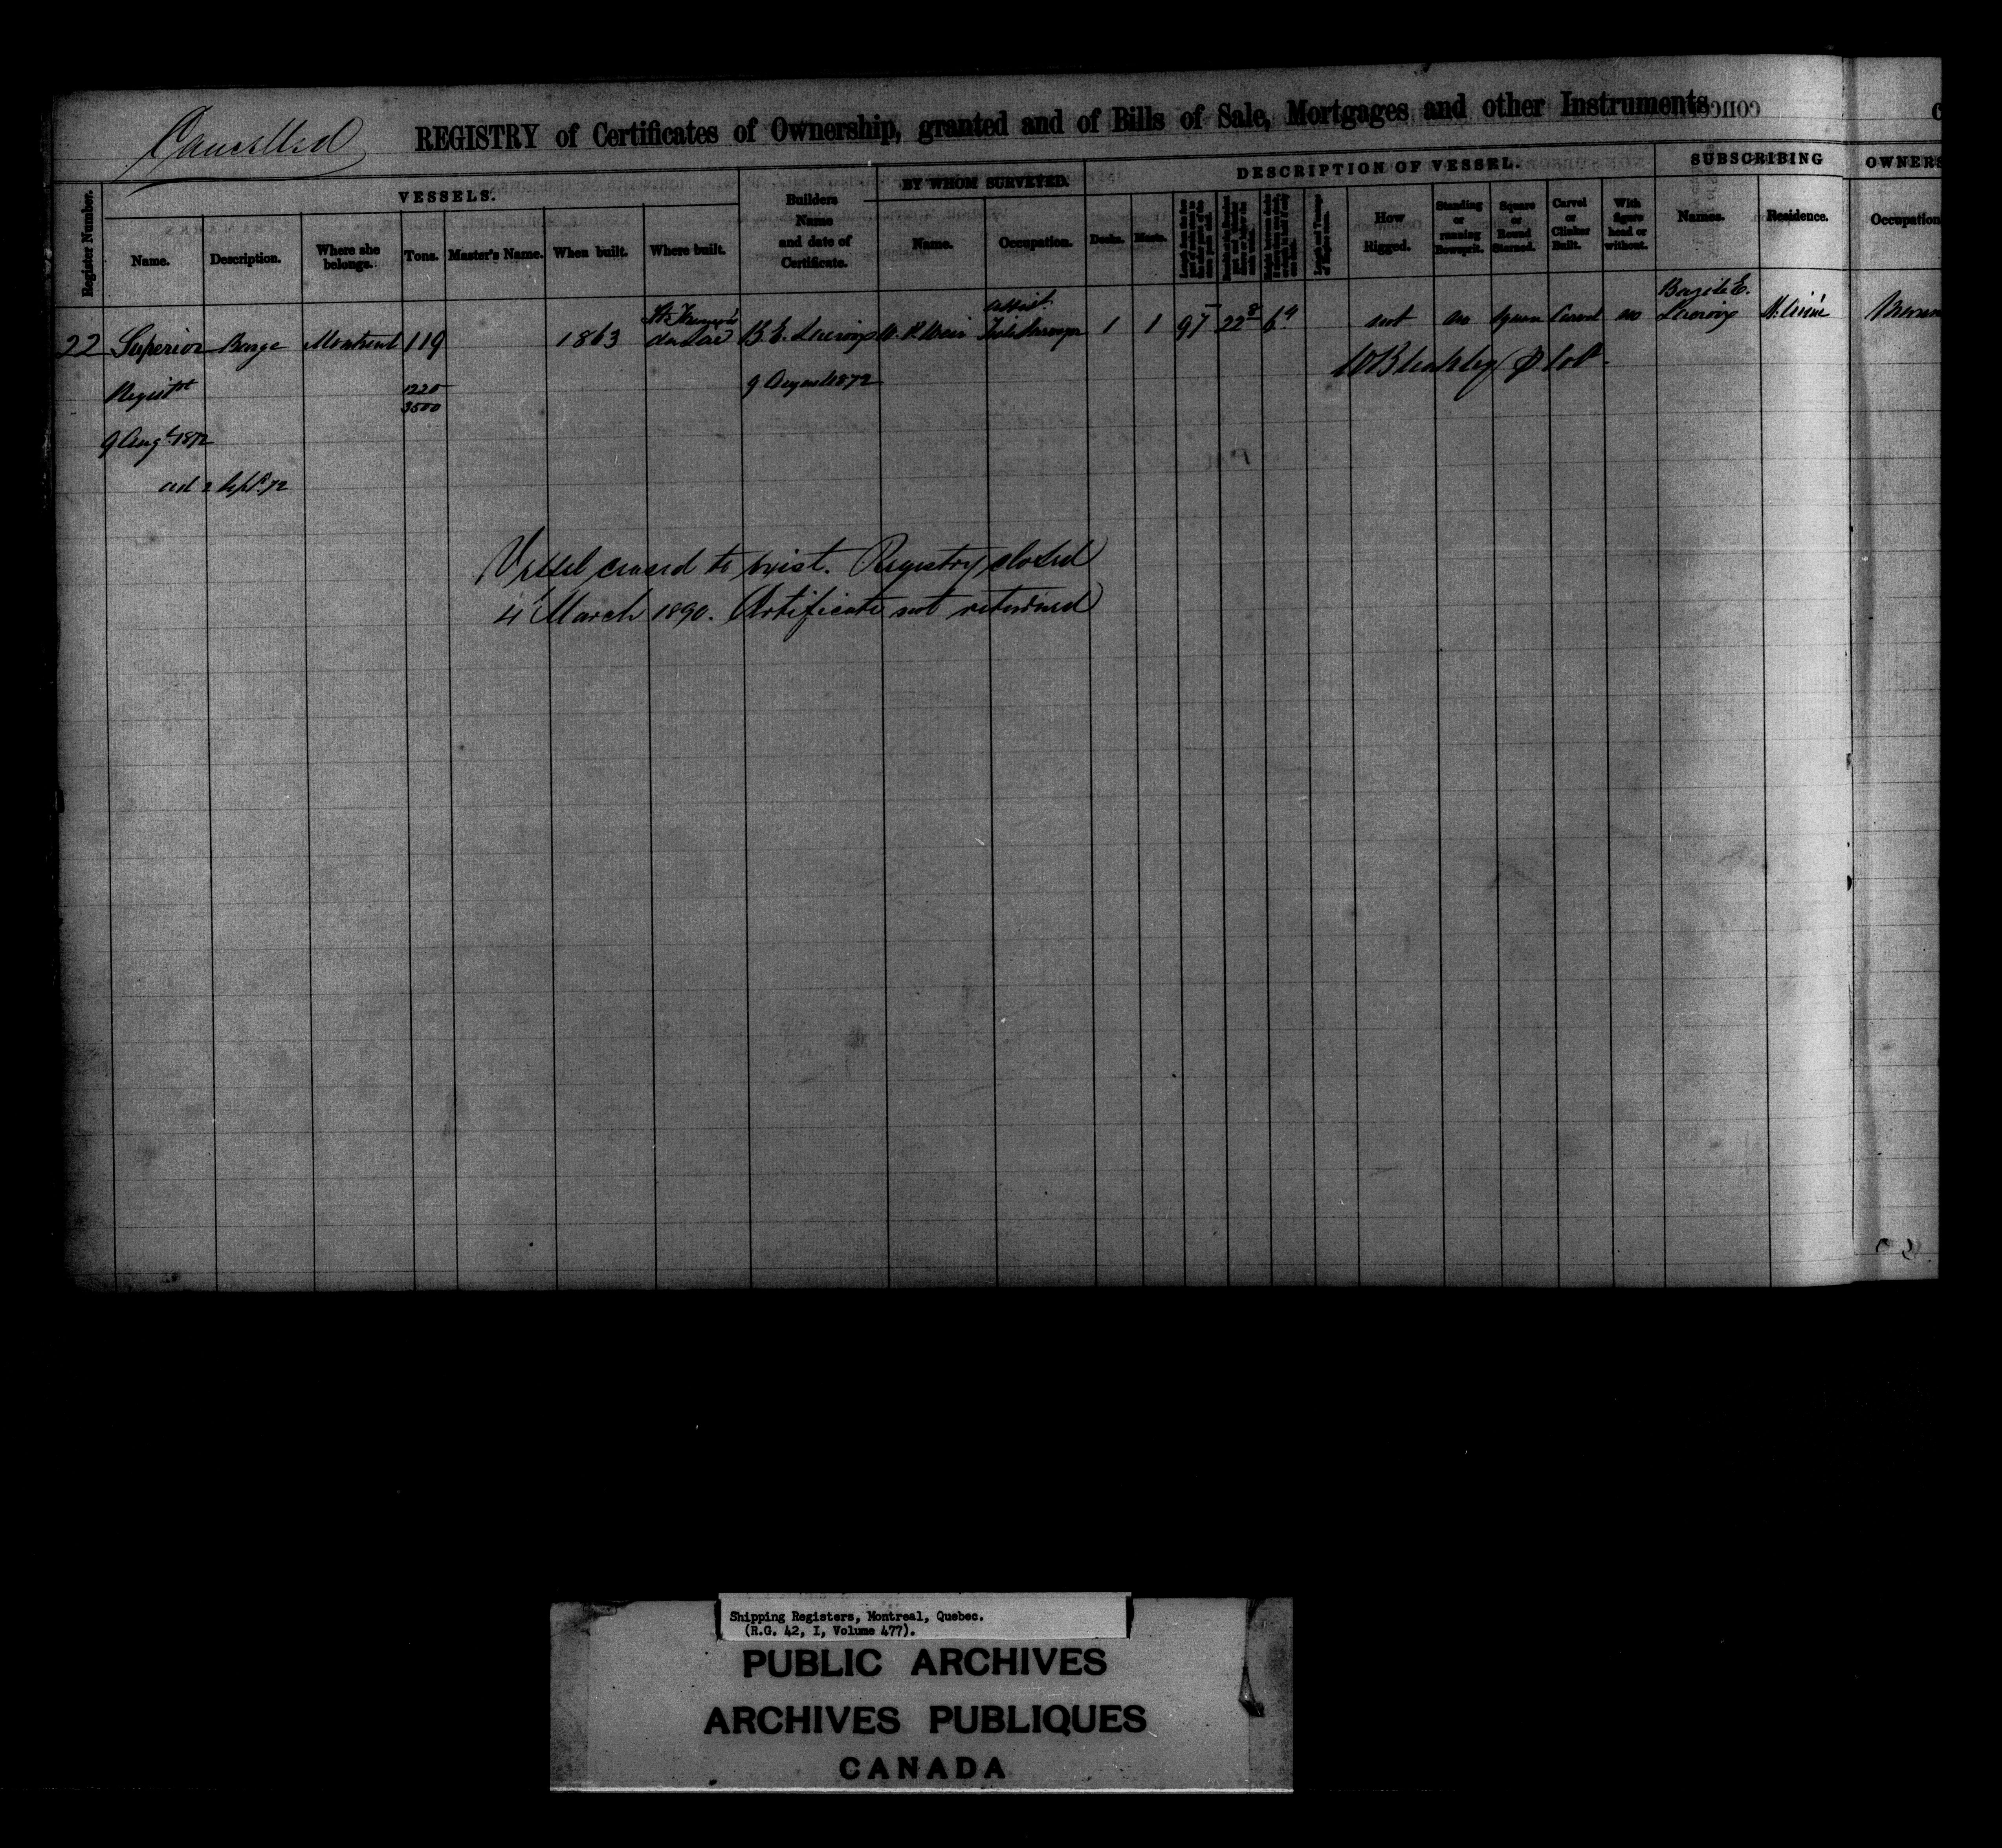 Cancelled
REGISTRY of Certificates of Ownership, granted and of Bills of Sale, Mortgages and other Instruments
VESSELS.
BY WHOM SURVEYED.
DESCRIPTION OF VESSEL.
SUBSCRIBING
OWNERS
Register Number.
Name.
Description.
Where she belongs.
Tons.
Master's Name.
When built.
Where built.
Builders Name and date of Certificate.
Name.
Occupation.
Decks.
Masts.
How Rigged.
Standing or running Bowsprit.
Square or Round Sterned.
Carvel or Clinker Built.
With figure head or without.
Names.
Residence.
Occupation
22 Superior Barge Montreal 119 1863 B. E. Lacroix 1 1 97 22 8 6 4 not no Square Carvel no Lacroix
Regist
1220
3500
9 August 1872
9 Augt. 1872
2 Sept. 72
Vessel ceased to exist. Registry closed
4 March 1890. Certificate not returned
Shipping Registers, Montreal, Quebec.
(R.G. 42, I, Volume 477).
PUBLIC ARCHIVES
ARCHIVES PUBLIQUES
CANADA